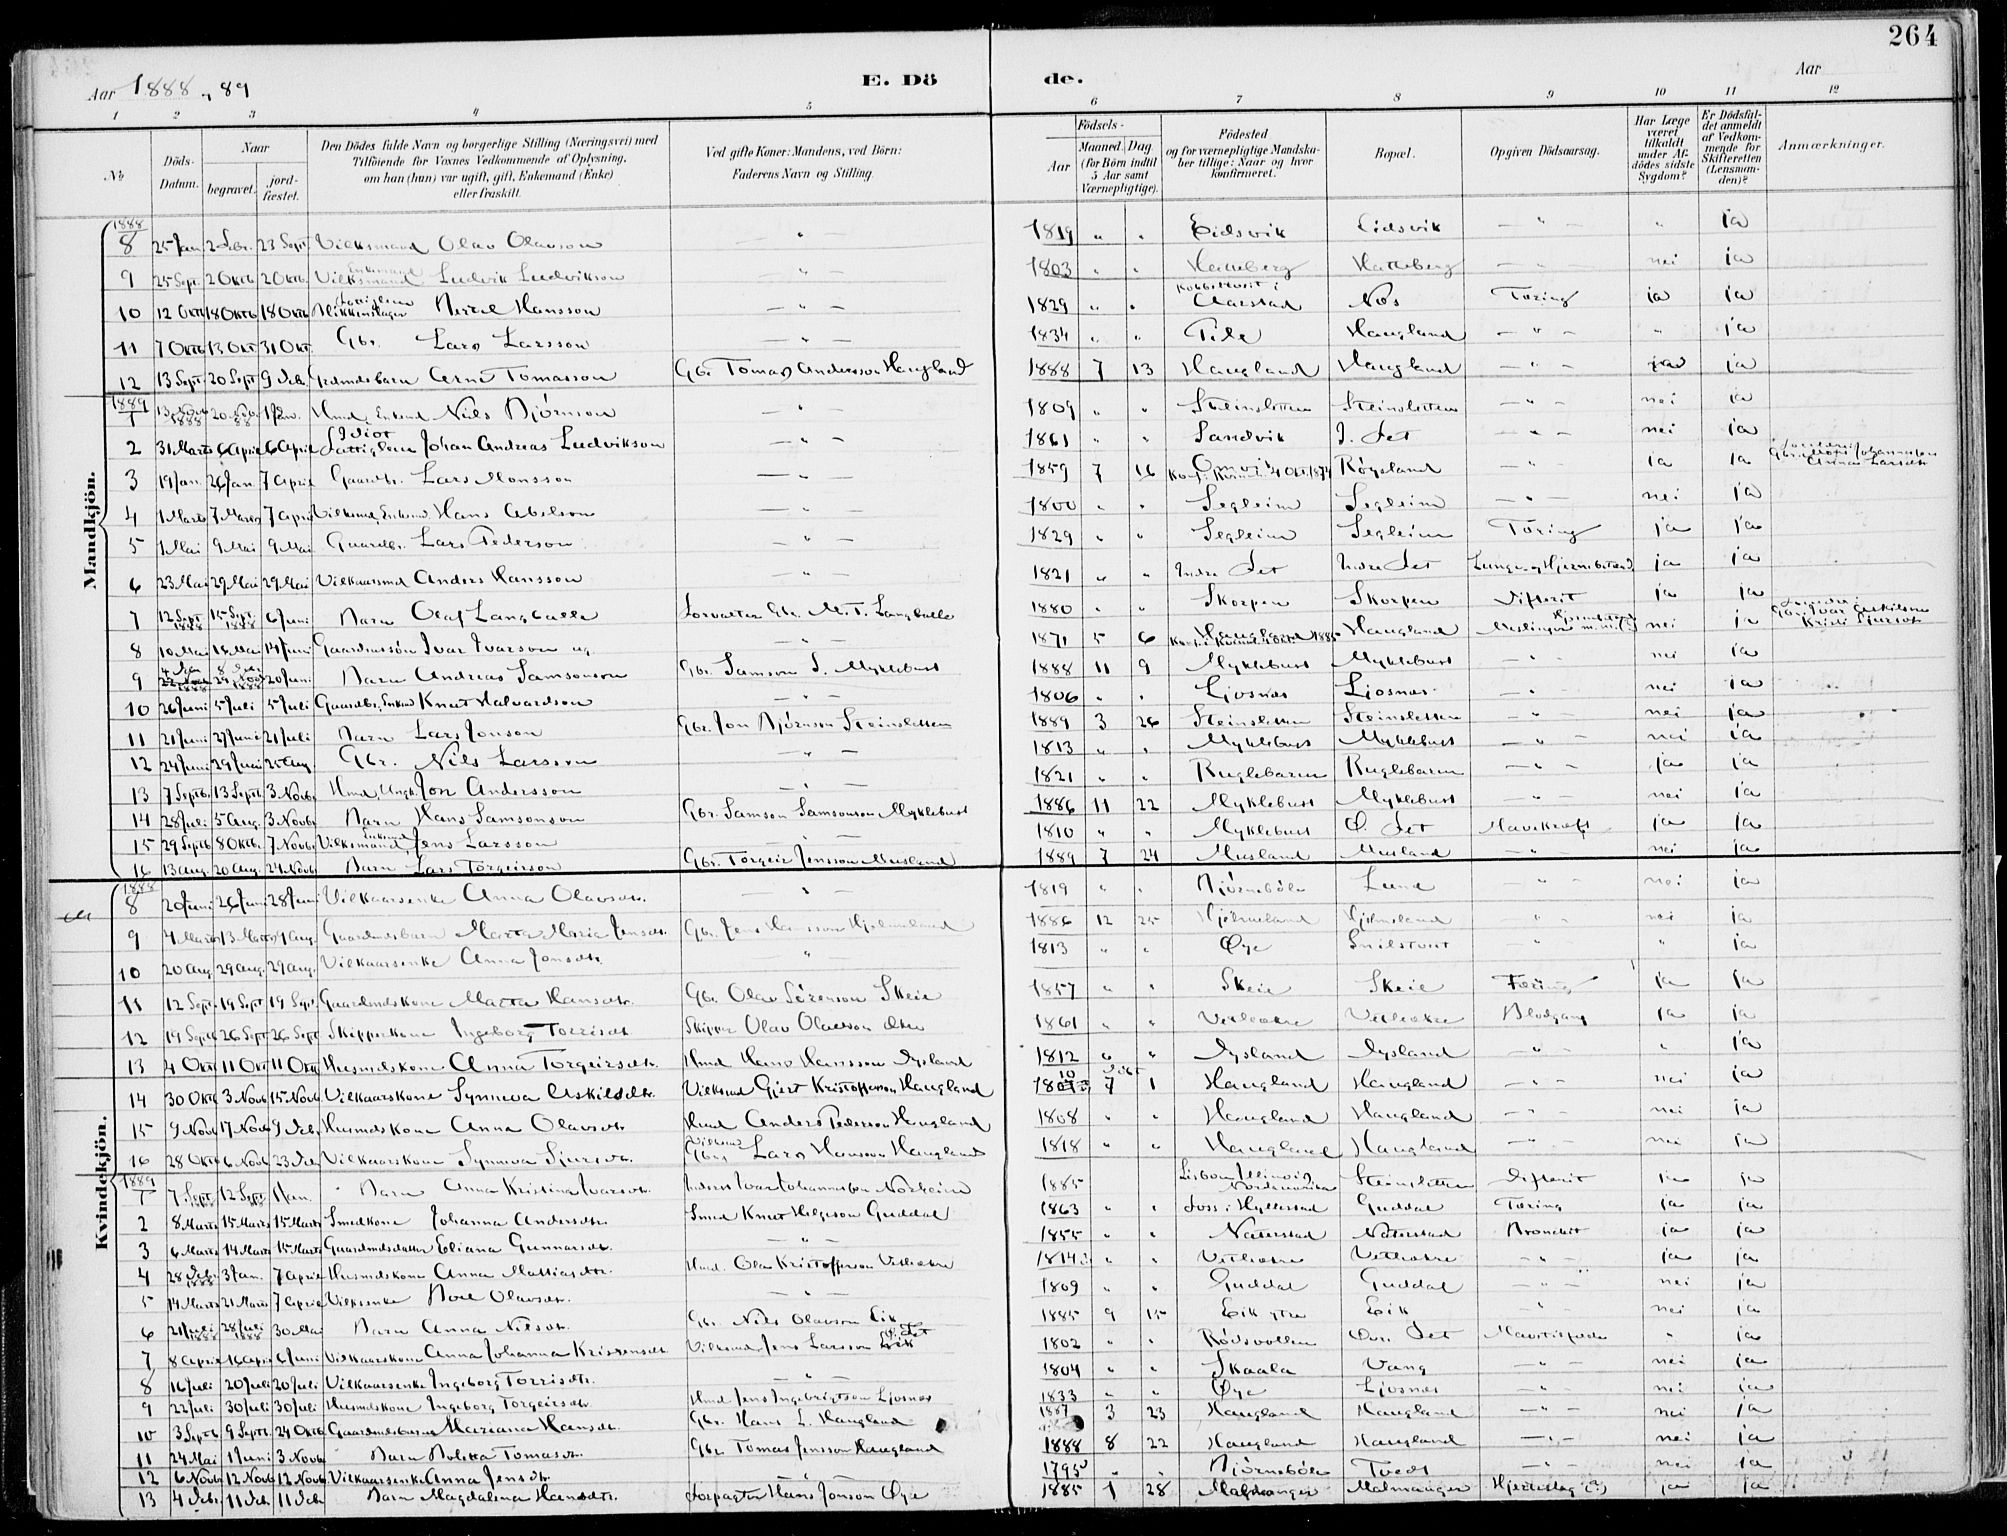 264
Aar 1888 „ 89 E. Dö de. Aar
1 2 3 4 5 6 7 8 9 10 11 12
No
Döds-Datum.
Naar
begravet.
jordfæstet.
Den Dödes fulde Navn og borgerlige Stilling (Næringsvei) med
Tilföiende for Voxnes Vedkommende af Oplysning,
om han (hun) var ugift, gift, Enkemand (Enke)
eller fraskilt.
Ved gifte Koner: Mandens, ved Börn:
Faderens Navn og Stilling.
Födsels-
Aar
Maaned. Dag.
(for Börn indtil 5 Aar samt Værnepligtige).
Födested
og for værnepligtige Mandskaber tillige: Naar og hvor konfirmeret.
Bopæl.
Opgiven Dödsaarsag.
Har Læge været tilkaldt under Afdödes sidste Sygdom?
Er Dödsfaldet anmeldt af Vedkommende for Skifteretten (Lensmanden)?
Anmærkninger.
Mandkjön.
1888
8 25 Jan. 2 Febr. 23 Sept. Vilksmand Olav Olavson — „ — 1819 „ „ Eidsvik Eidsvik — „ — „ ja
9 25 Sept. 2 Oktb 2 Oktb. Vilksmand Enkemand Ludvik Ludvikson — „ — 1803 „ „ Hatteberg Hatteberg — „ — nei ja
10 12 Oktb 18 Oktb 18 Oktb Hansson — „ — 1829 „ „ Aarstad Nes Tæring ja ja
11 7 Oktb 13 Okt 31 Okt. Gbr. Lars Larsson — „ — 1834 „ „ Tile Haugland — „ — „ ja
12 13 Sept 20 Sept 9 Deb. Grdmdsbarn Arne Tomasson Gbr. Tomas Andersson Haugland 1888 7 13 Haugland Haugland — „ — ja ja
1889
1 13 Novb 1888 20 Nov. 88 1 Jan. Hmd, Enkmd Nils Bjørnson — „ — 1809 „ „ Steinsletten Steinsletten — „ — nei ja
2 31 Marts 6 April 6 April Idiot Fattiglem Johan Andreas Ludvikson — „ — 1861 „ „ Sandvik I. Set — „ — nei ja
3 19 Jan. 26 Jan. 7 April Gaardbr. Lars Monsson — „ — 1859 7 16 Omvik Røysland — „ — ja ja
4 1 Marts 7 Marts 7 April Vilksmd, Enkmd. Hans Abelson — „ — 1800 „ „ Segleim Segleim — „ — nei ja
5 1 Mai 9 Mai 9 Mai Gaardbr. Lars Pederson — „ — 1829 „ „ Segleim Segleim Tæring ja ja
6 23 Mai 29 Mai 29 Mai Vilkaarsmd Anders Hansson — „ — 1821 „ „ Indre Set Indre Set ja ja
7 12 Sept 1888 15 Sept. 1888 6 Juni Barn Olaf Langballe Forvalter M. T. Langballe 1880 „ „ Skorpen Skorpen Difterit ja ja
8 10 Mai 16 Mai 14 Juni Gaardmssøn Ivar Ivarson ug. — „ — 1871 5 6 Haugland Haugland nei ja
9 4 Dec 8 Dec 1888 20 Juni Barn Andreas Samsonson Gbr. Samson S. Myklebust 1888 11 9 Myklebust Myklebust — „ — nei ja
10 26 Juni 5 Juli 5 Juli Gaardbr, Enkmd Knut Halvardson — „ — 1806 „ „ Ljosnes Ljosnes — „ — nei ja
11 21 Juni 27 Juni 21 Juli Barn Lars Jonson Gbr. Jon Bjørnson Steinsletten 1889 3 26 Steinsletten Steinsletten — „ nei ja
12 24 Juni 29 Juni 25 Aug Gbr. Nils Larsson — „ — 1813 „ „ Myklebust Myklebust — „ — nei ja
13 7 Septb. 13 Septb. 3 Novb. Hmd, Ungk. Jon Andersson — „ — 1821 „ „ Ruglebaren Ruglebaren — „ — ja ja
14 28 Juli 5 Aug. 3 Novb. Barn Hans Samsonson Gbr. Samson Samsonson Myklebust 1886 11 22 Myklebust Myklebust — „ — nei ja
15 29 Septb 8 Oktb. 7 Novb. Vilksmand, Enkmd Jens Larsson — „ — 1810 „ „ Myklebust Ø. Set Mavekræft ja ja
16 13 Aug. 20 Aug. 24 Novb Barn Lars Torgeirson Gbr. Torgeir Jensson Musland 1889 7 24 Musland Musland — „ — nei ja
Kvindekjön.
1888
8 20 Juni 26 Juni 28 Juni Vilkaarsenke Anna Olavsdtr. — „ — 1819 „ „ Bjørnebøle Lund — „ — nei ja
9 4 Marts 13 Marts 4 Aug. Gaardmdsbarn Marta Maria Jensdtr. Gbr. Jens Hansson Hjelmeland 1886 12 25 Hjelmeland Hjelmeland — „ nei ja
10 20 Aug. 29 Aug. 29 Aug. Vilkaarsenke Anna Jonsdtr. — „ — 1813 „ „ Øye Snilstveit „ „ ja
11 12 Sept. 19 Sept 19 Sept Gaardmdskone Marta Hansdtr. Gbr. Olav Sørenson Skeie 1857 „ „ Skeie Skeie Tæring ja ja
12 19 Septb 26 Sept 26 Sept Skipperkone Ingeborg Torrisdtr. Skipper Olav Olavson 1861 „ „ Vetleøkre Vetleøkre Blodgang ja ja
13 4 Oktb 11 Okt 11 Oktb Husmdskone Anna Torgeirsdtr. Hmd Hans Hansson Dysland 1812 „ „ Dysland Dysland — „ — „ ja
14 30 Oktb 3 Novb 15 Novb Vilkaarskone Synneva Askilsdtr. Vilksmd Gjert Kristofferson Haugland 7 1 Haugland Haugland — „ — nei ja
15 9 Novb 17 Novb 9 Deb. Husmdskone Anna Olavsdtr. Hmd Anders Pederson Haugland 1808 „ „ Haugland Haugland — „ — nei ja
16 28 Oktb 6 Novb 23 Deb. Vilkaarskone Synneva Sjursdtr. Vilksmd Lars Hansson Haugland 1818 „ „ Haugland Haugland — „ — nei ja
1889
1 7 Sept 12 Sept 1 Jan. Barn Anna Kristina Ivarsdtr. Ivar Johannesson Norheim 1885 Lisbon, Illinois, Nordamerika Steinsletten Difterit ja ja
2 8 Marts 15 Marts 15 Marts Smedkone Johanna Andersdtr. Smed Knut Helgeson Guddal 1863 „ „ Foss i Hyllestad Guddal Tæring ja ja
3 6 Marts 14 Marts 15 Marts Gaardmdsdatter Eliana Gunnarsdtr. — „ — 1855 „ „ Naterstad Naterstad Bronckit ja ja
4 28 Deb. 1888 3 Jan. 7 April Husmdskone Anna Mattiasdtr. Hmd. Olav Kristofferson Vetleøkre 1814 „ „ Vetleøkre Vetleøkre — „ — ja ja
5 14 Marts 21 Marts 7 April Vilksenke Olavsdtr. — „ — 1809 „ „ Guddal Guddal — „ — nei ja
6 21 Juli 1888 28 Juli 1888 30 Mai Barn Anna Nilsdtr. Gbr. Nils Olavson Eik 1885 9 15 Eik ytre Eik — „ — nei ja
7 8 April 16 April 6 Juni Vilkaarskone Anna Johanna Kristensdtr. Vilksmd. Jens Larsson Ø. Set 1802 „ „ Rødsvollen Øvr. Set „ ja
8 16 Juli 20 Juli 20 Juli Vilkaarsenke Ingeborg Torrisdtr. — „ — 1804 „ „ Skaala Vang — „ — nei ja
9 22 Juli 30 Juli 30 Juli Husmdskone Ingeborg Torgeirsdtr. Hmd Jens Ingebrigtson Ljosnes 1833 „ „ Øye Ljosnes — „ — nei ja
10 3 Septb 9 Septb. 24 Oktb. Gaardmdsbarn Mariana Hansdtr. Gbr. Hans L. Haugland 1887 3 23 Haugland Haugland — „ — nei ja
11 24 Mai 1 Juni 3 Novb. Barn Boletta Tomasdtr. Gbr Tomas Jensson Haugland 1888 8 22 Haugland Haugland — „ — nei ja
12 6 Novb 12 Novb 12 Novb. Vilkaarsenke Anna Jensdtr. — „ — 1795 „ „ Bjørnebøle Tvedt — „ — nei ja
13 4 Deb. 11 Deb 11 Deb Barn Magdalena Hansdtr. Forpagter Hans Jonson Øye 1885 1 28 Malmanger Malmanger Hjerteslag (?) ja ja